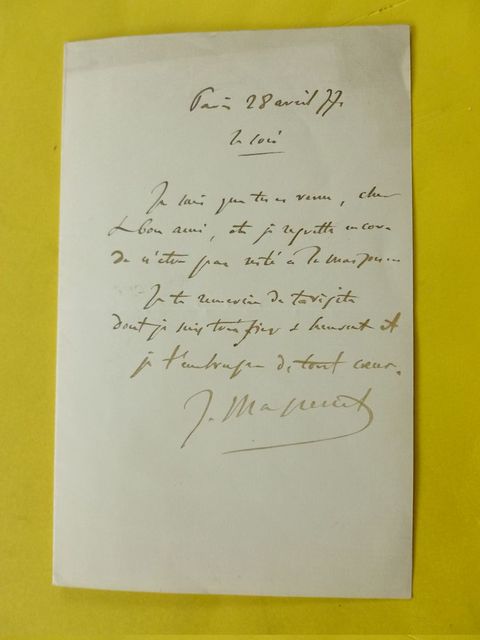 Paris 28 avril 77.
le soir
Je sais que tu es venu, cher
& bon ami, et je regrette encore
de n'être pas resté à la maison...
Je te remercie de ta visite
dont je suis très fier & heureux et
je t'embrasse de tout cœur.
J. Massenet